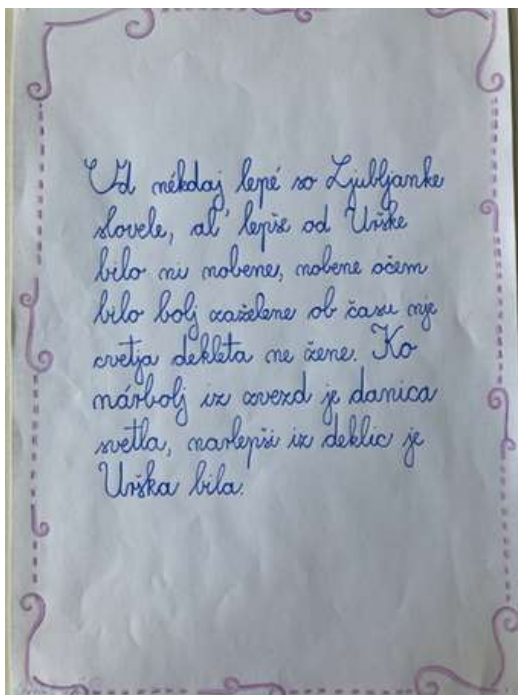 Od nékdaj lepé so Ljubljanke
slovele, al' lepše od Urške
bilo ni nobene, nobene očem
bilo bolj zaželene ob času nje
cvetja dekleta ne žene. Ko
nárbolj iz zvezd je danica
svetla, narlepši iz deklic je
Urška bila.